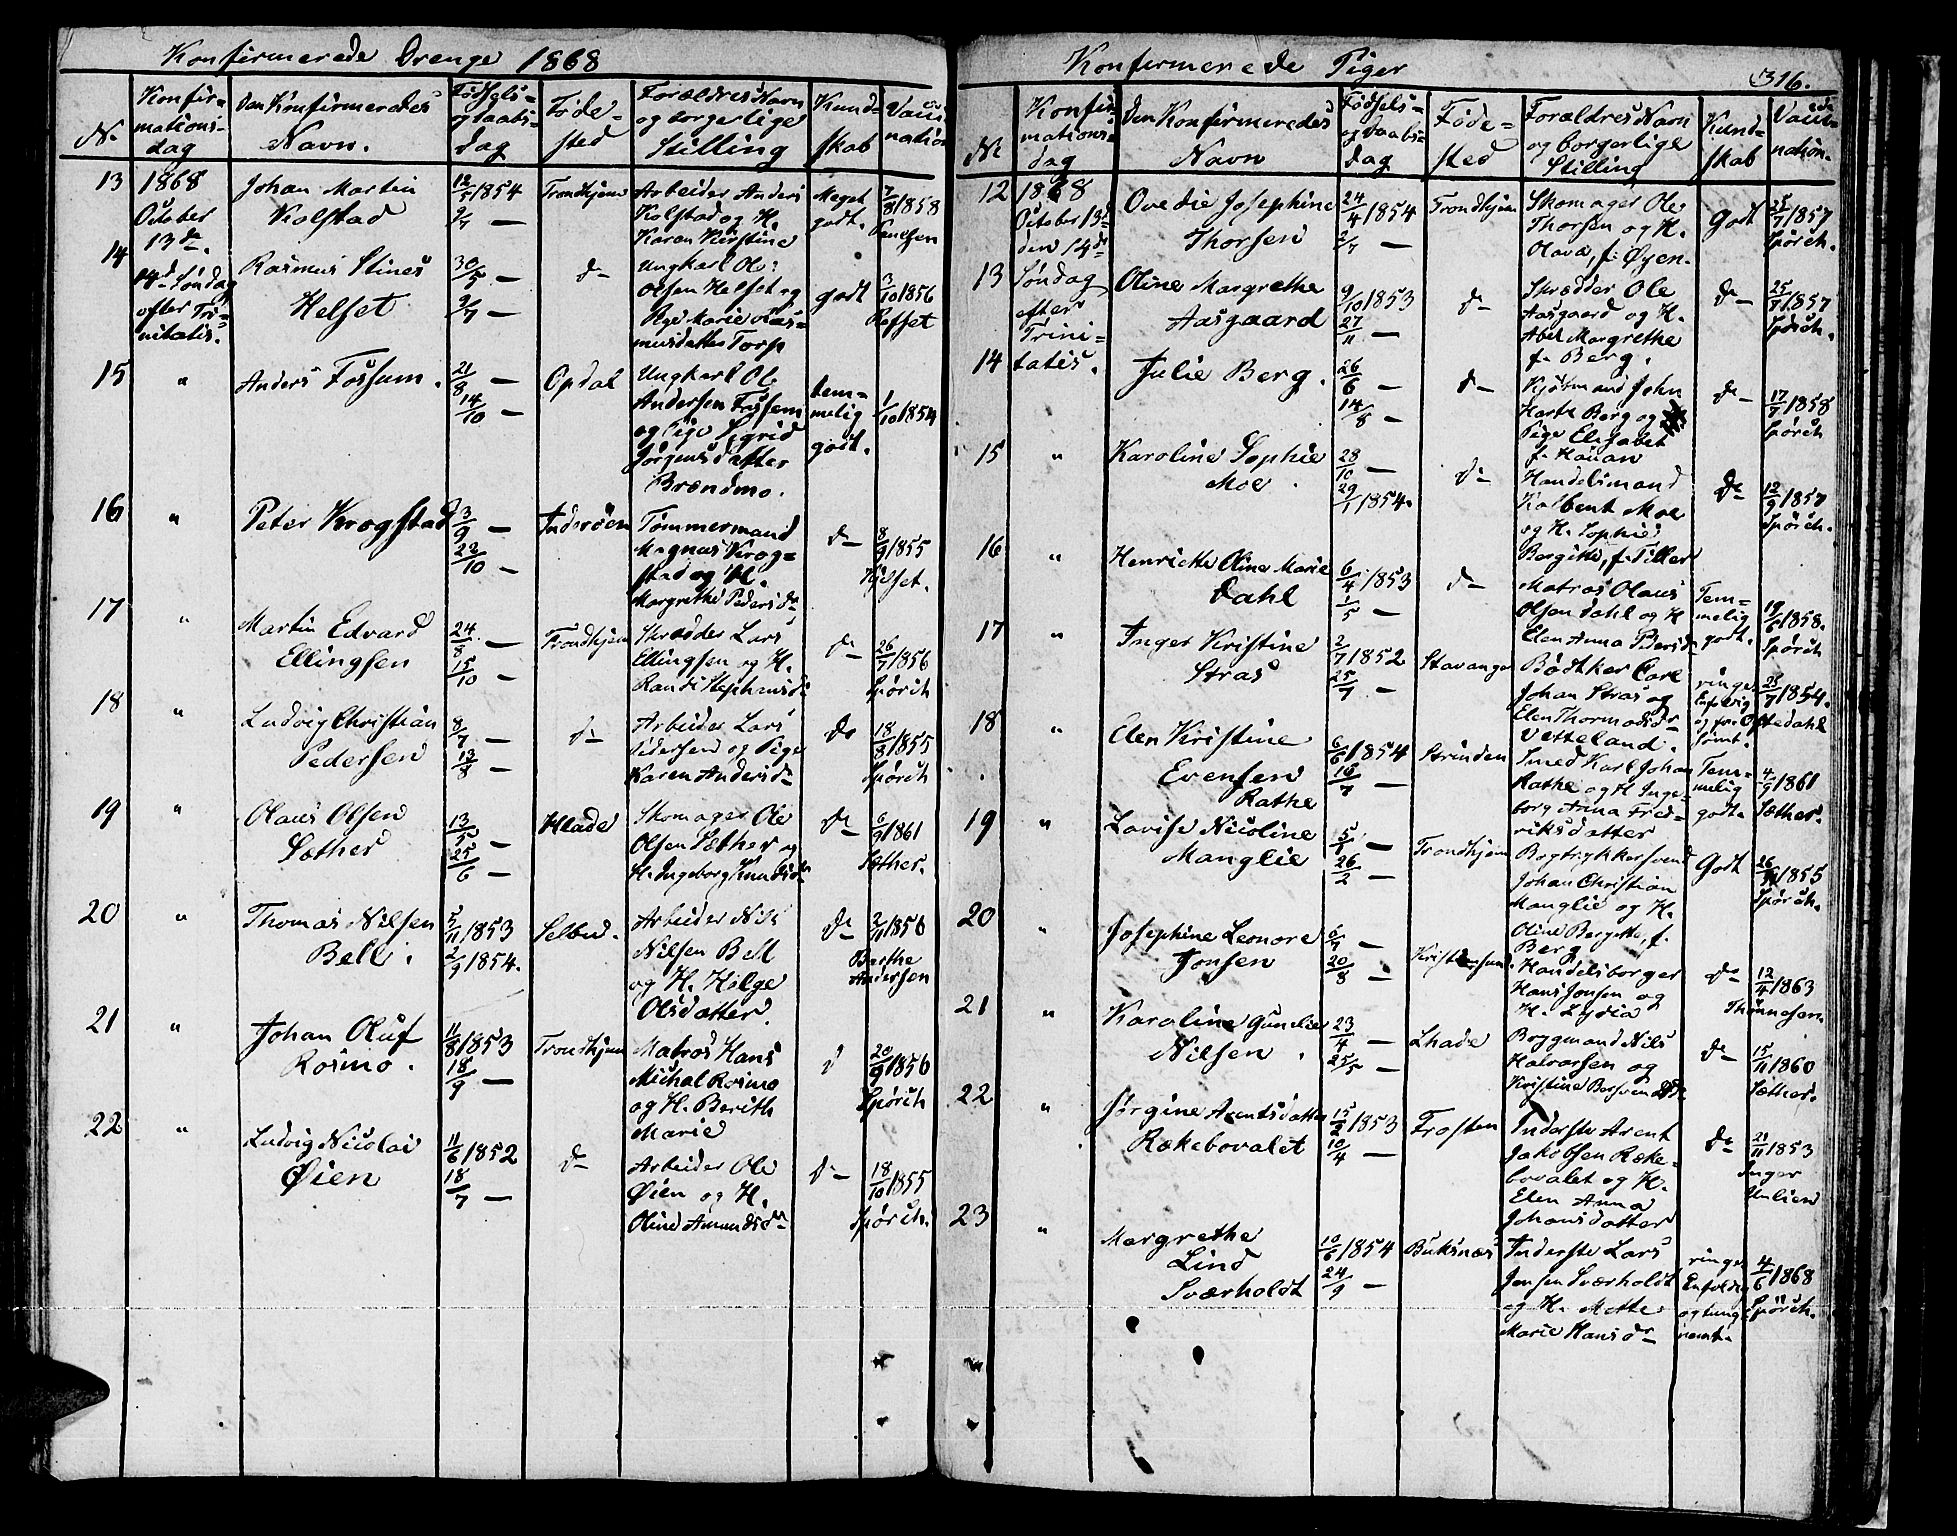 Konfirmerede Drenge 1868
No
Konfir-
mations-
dag
Den Konfirmeredes
Navn.
Fødsels-
og Daabs-
dag
Føde-
sted
Forældres Navn
og borgerlige
Stilling
Kund-
skab
Vacci-
nation
13
1868
October
13de
Johan Martin
Kolstad
12/5 1854
2/7 —
Trondhjem
Arbeider Anders
Kolstad og H.
Karen Kirstine
Meget
godt.
7/8 1858
14
14d Søndag
efter Tri-
nitatis.
Rasmus Stines
Helset
30/5 —
2/7 —
do
Ungkarl Ole
Olsen Helset og
Pige Marie Ras-
musdatter Torp
godt
3/10 1856
Refset
15
"
Anders Fossum.
21/8 —
14/10 —
Opdal
Ungkarl Ole
Andersen Fossem
og Pige Sigrid
Jørgensdatter
Brændmo.
tem-
melig
godt.
1/10 1854
16
"
Peter Krogstad
3/9 —
22/10 —
Inderøen
Tømmermand
Magnus Krog-
stad og H.
Margrethe Pedersdr
do
8/9 1855
Hjelset.
17
"
Martin Edvard
Ellingsen
24/8 —
15/10 —
Trondhjem
Skrædder Lars
Ellingsen og H.
Randi Stephensdr
do
26/7 1856
Spørch
18
"
Ludvig Christian
Pedersen
8/7 —
13/8 —
do
Arbeider Lars
Pedersen og Pige
Karen Andersdr
do
18/8 1855
Spørch
19
"
Olaus Olsen
Sæther
13/5 —
25/6 —
Hlade
Skomager Ole
Olsen Sæther og
H. Ingeborg Knudsdr
do
6/9 1861
Sæther.
20
"
Thomas Nilsen
Bell.
5/11 1853
2/9 1854.
Selbu.
Arbeider Nils
Nilsen Bell
og H. Helge
Olsdatter.
do
2/11 1856
Berthe
Andersen
21
"
Johan Oluf
Rosmo.
11/8 1853
18/9 —
Trondhjem
Matros Hans
Michal Rosmo
og H. Berith
Marie
d
20/9 1856
Spørch
22
"
Ludvig Nicolai
Øien
11/6 1852
18/7 —
do
Arbeider Ole
Øien og H.
Oline Amundsdr
do
18/10 1855
Spørch.
Konfirmerede Piger
316.
No
Konfir-
mations-
dag
Den Konfirmeredes
Navn
Fødsels-
og Daabs-
dag
Føde-
sted
Forældres Navn
og borgerlige
Stilling
Kund-
skab
Vacci-
nation.
12
1868
October 13de
den 14de
Ovedie Josephine
Thorsen
24/4 1854
2/7 —
Trondhjem
Skomager Ole
Thorsen og H.
Olava, f. Øyen.
Godt
25/7 1857
Spørch.
13
Søndag
efter
Trini-
Oline Margrethe
Aasgaard
9/10 1853
27/11 —
do
Skrædder Ole
Aasgaard og H.
Abel Margrethe
f. Berg.
do
25/7 1857
Spørch.
14
tatis.
Julie Berg.
26/6 —
14/8 —
do
Kjøbmand John
Hartv. Berg og
Pige Elisabet
f. Hauan
do
17/7 1858
Spørch
15
"
Karoline Sophie
Moe.
28/10 —
29/1 1854.
do
Handelsmand
Kolbent Moe
og H. Sophie
Bergitte, f. Tiller
do
12/9 1857
Spørch.
16
"
Henriette Oline Marie
Dahl
6/4 1853
1/5 —
do
Matros Olaus
Olsen Dahl og H
Elen Anna Pedersdr
Tem-
melig
godt.
19/6 1858.
Spørch
17
"
Inger Kristine
Stras
2/7 1852
25/7 —
Stavanger
Bødtker Carl
Johan Stras og
Elen Thormodsdr
Vetteland.
ringe.
Enfoldig
25/7 1854.
Oftedahl
18
"
Elen Kristine
Evensen
Rathe
6/6 1854
16/7 —
Strinden
Smed Karl Johan
Rathe og H. Inge-
borg Anna Fred-
riksdatter
Tem-
melig
godt.
4/9 1861
Sæther.
19
"
Lovise Nicoline
Manglie
5/1 —
26/2 —
Trondhjem
Bogtrykkersvend
Johan Christian
Manglie og H.
Oline Bergitte, f.
Berg
Godt
1855
Spørch.
20
"
Josephine Leonore
Jonsen
6/7 —
20/8 —
Kristiansund.
Handelsborger
Hans Jonsen og
H. Lydia
do
12/4 1863
Thønnesen.
21
"
Karoline Gunelie
Nilsen.
23/4 —
25/5 —
Lhade
Byggmand Nils
Halvorsen og
Kristine Bersvendsdr.
do
15/11 1860
Sæther.
22
"
Jørgine Arntsdatter
Rækebovalet
15/2 1853
10/4 —
Frosten
Inderste Arent
Jakobsen Ræke-
bovalet og H.
Elen Anna
Johansdatter
do
21/11 1853
Inger
Unlien
23
"
Margrethe
Lind
Sværholdt
10/6 1854
24/9 —
Buksnæs
Inderste Lars
Jensen Sværholdt
og H. Mette
Marie Hansdr
ringe
Enfoldig
og tung
nemt.
4/6 1868
Spørch.